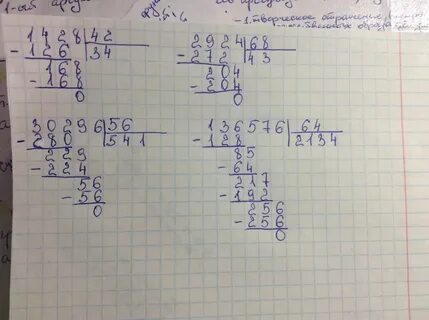 1-ый
-1. творческое отражение
1428 42
- 126 34
168
- 168
0
2924 68
- 272 43
204
- 204
0
30296 56
- 280 541
229
- 224
56
- 56
0
136576 64
- 128 2134
85
- 64
217
- 192
256
- 256
0